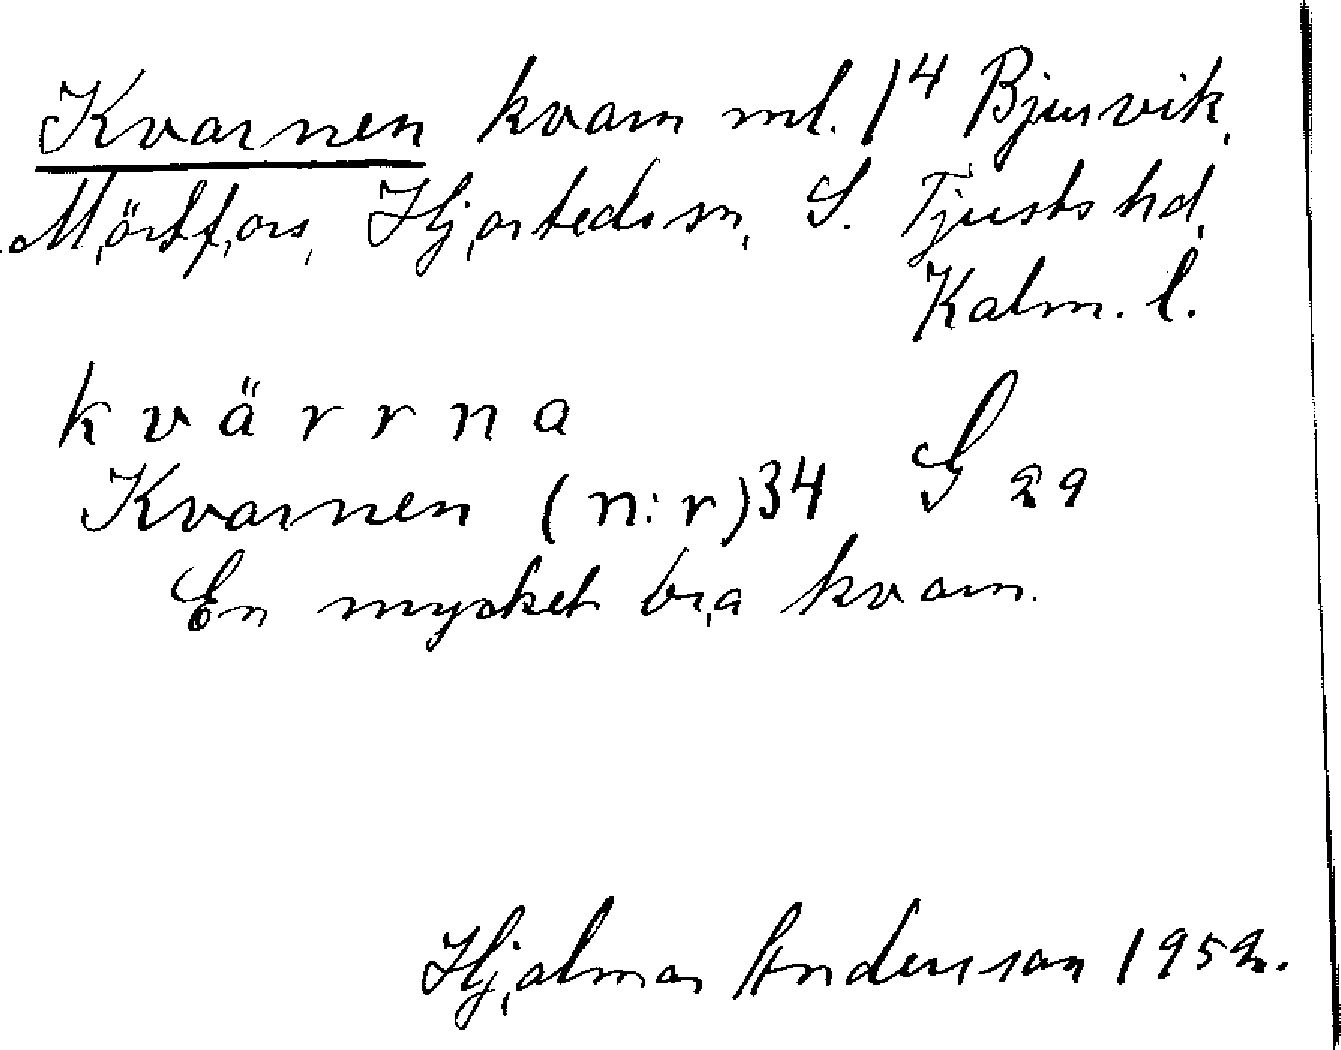 Kvarnen kvarn ml. 1⁴ Bjursvik,
Mörtfors, Hjorteds sn, S. Tjusts hd,
Kalm. l.
kvärrna
Kvarnen (n:r) 34 G 29
En mycket bra kvarn.
Hjalmar Andersson 1952.